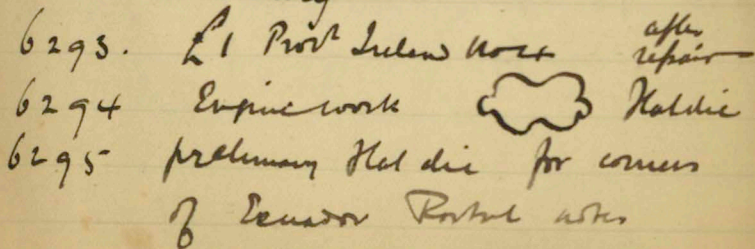 6293. £1 Provl Ireland Note after repair
6294 Engine work Flat die
6295 preliminary Flat die for corners
of Ecuador Postal notes